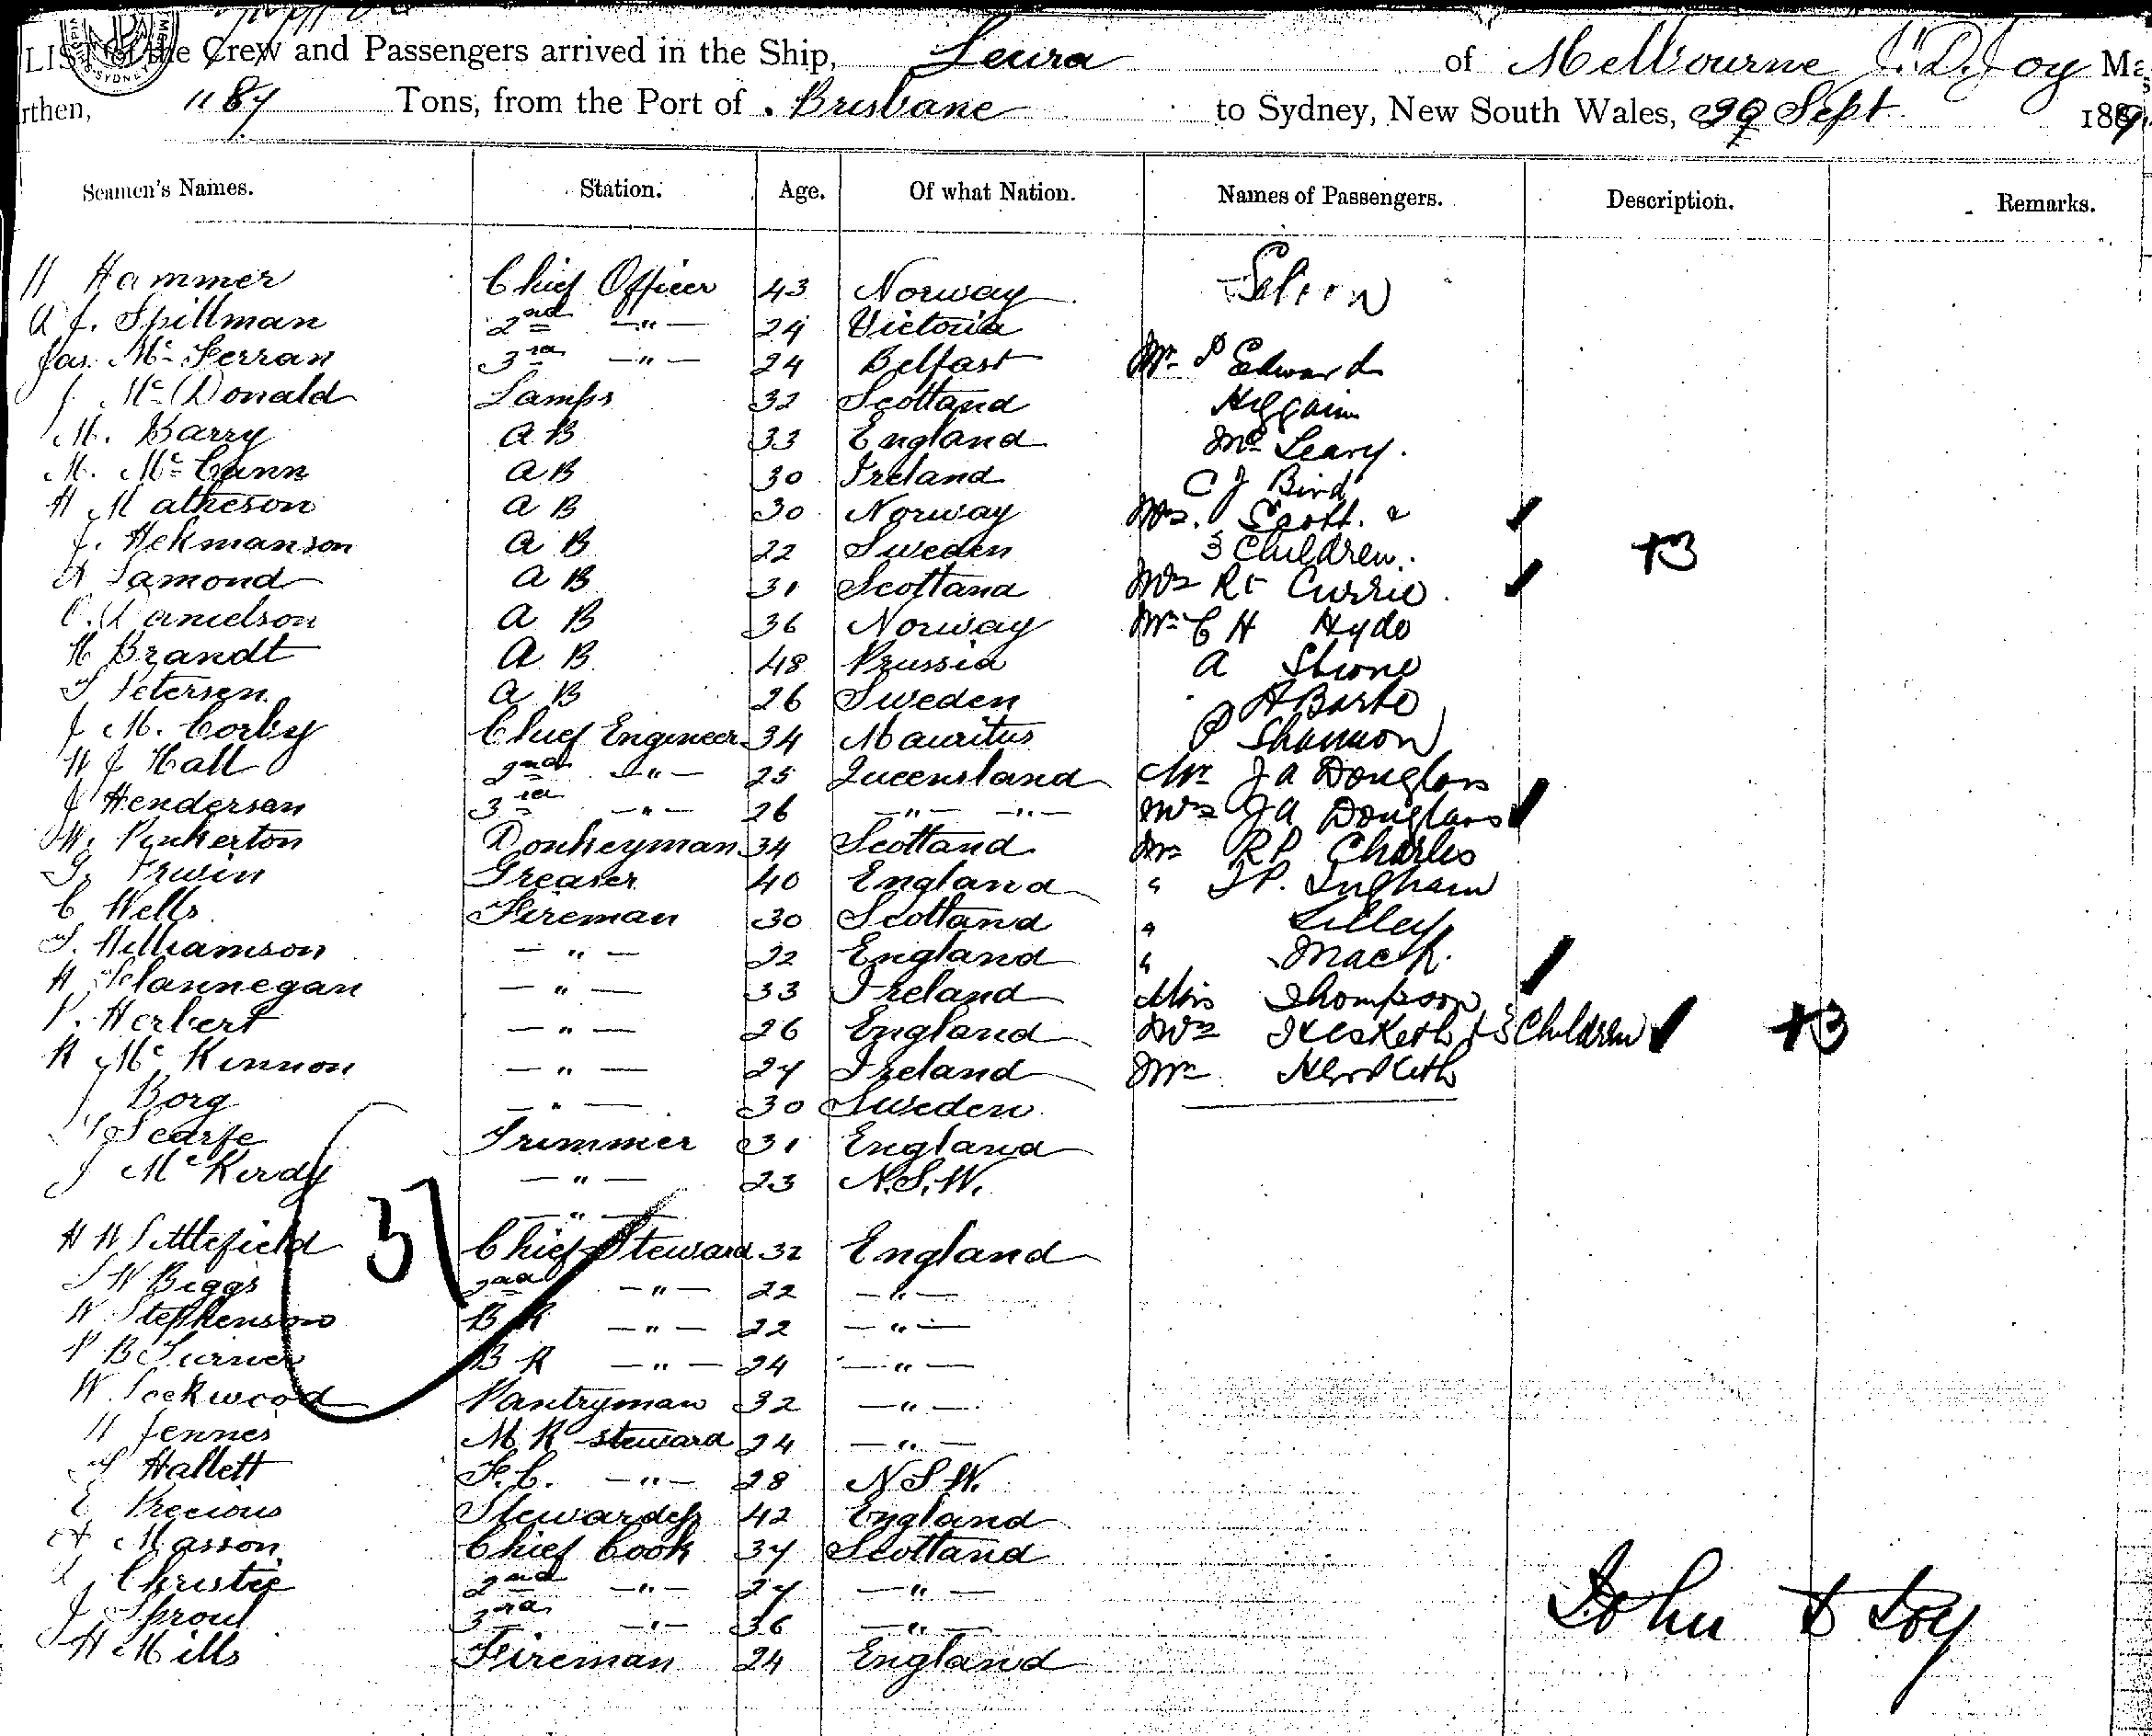 LIST of the Crew and Passengers arrived in the Ship, Leura of Melbourne J. D. Joy Ma
rthen, 1187 Tons, from the Port of Brisbane to Sydney, New South Wales, 29 Sept 1889
Seamen's Names. Station. Age. Of what Nation. Names of Passengers. Description. Remarks.
H Hammer Chief Officer 43 Norway Saloon
A J. Spillman 2nd —"— 24 Victoria
Jas. Mc Ferran 3rd —"— 24 Belfast Mr P Edward
J. Mc Donald Lamps 32 Scotland
M. Barry A B 33 England Mc Leary.
M. Mc Cann A B 30 Ireland C J Bird
H Matheson A B 30 Norway Mrs. Scott. &
J. Hekmanson A B 22 Sweden 3 Children. +3
A Lamond A B 31 Scotland Mrs Rt Currie
C. Danielson A B 36 Norway Mr C H Hyde
H Brandt A B 48 Prussia A Stone
T Petersen A B 26 Sweden A Barto
J M. Corby Chief Engineer 34 Mauritus P Shannon
W J Hall 2nd —"— 25 Queensland Mr J A Douglass
J Henderson 3rd —"— 26 —"— —"— Mrs J A Douglass
W. Pinkerton Donkeyman 34 Scotland Mr R P Charles
G. Irwin Greaser 40 England " J P. Ingham
C Wells Fireman 30 Scotland " Lilley
T. Williamson —"— 22 England " Mack.
H Flannegan —"— 33 Ireland Miss Thompson
P. Herbert —"— 26 England Mrs Hesketh + 3 Children +3
R Mc Kinnon —"— 24 Ireland Mr Hesketh
J Borg —"— 30 Sweden
T Scarfe Trimmer 31 England
J McKirdy —"— 23 N.S.W.
—"—
H W Littlefield 37 Chief Steward 32 England
T W Biggs 2nd —"— 22 —"—
W. Stephenson B R —"— 22 —"—
P B Turner B R —"— 24 —"—
W. Lockwood Pantryman 32 —"—
H Jennes M R steward 24 —"—
T Hallett F.C. —"— 28 N S W.
E Precious Stewardess 42 England
A Masson Chief Cook 34 Scotland
Christie 2nd —"— 27 —"—
J Sproul 3rd —"— 36 —"—
H Mills Fireman 24 England
John D Joy